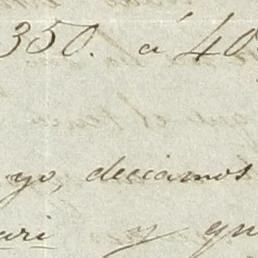 350. á 40
yo, deciamos
ari y qu